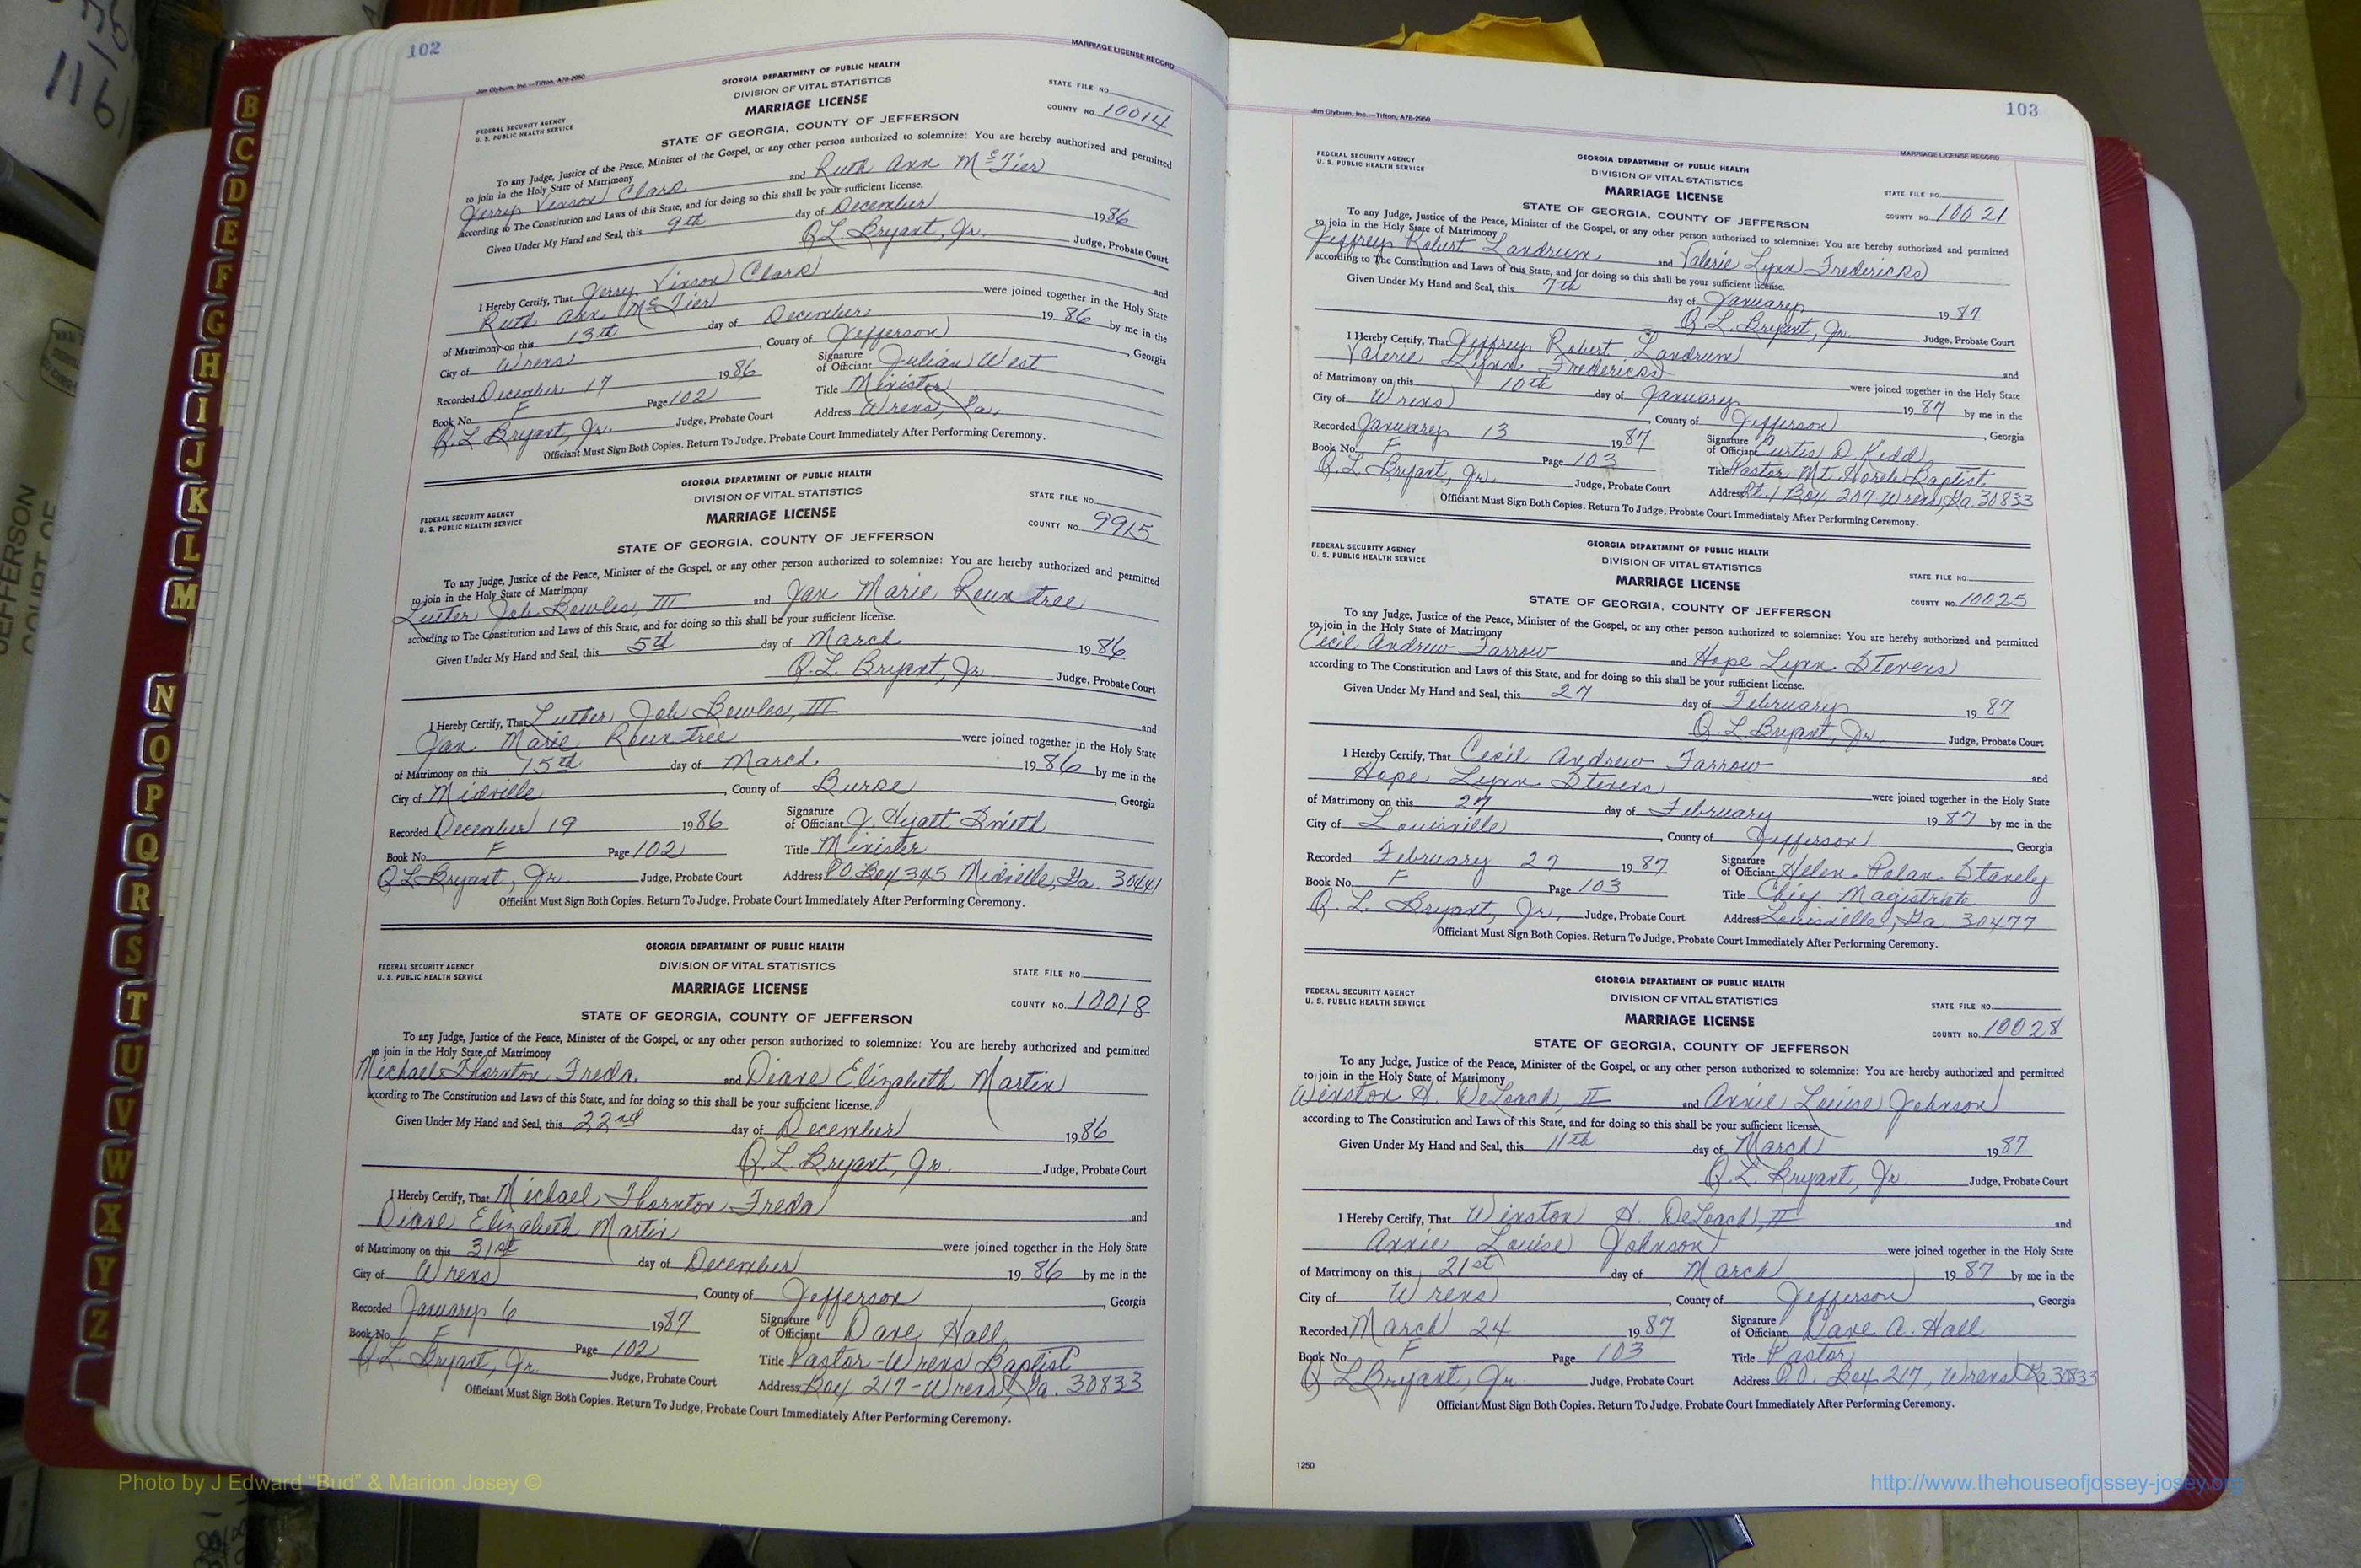 102
MARRIAGE LICENSE RECORD
Jim Clyburn, Inc.—Tifton, A78-2950
GEORGIA DEPARTMENT OF PUBLIC HEALTH
DIVISION OF VITAL STATISTICS
MARRIAGE LICENSE
STATE FILE NO.
COUNTY NO. 10014
FEDERAL SECURITY AGENCY
U. S. PUBLIC HEALTH SERVICE
STATE OF GEORGIA, COUNTY OF JEFFERSON
To any Judge, Justice of the Peace, Minister of the Gospel, or any other person authorized to solemnize: You are hereby authorized and permitted
to join in the Holy State of Matrimony
Jerry Vinson Clark and Ruth Ann McTier
according to The Constitution and Laws of this State, and for doing so this shall be your sufficient license.
Given Under My Hand and Seal, this 9th day of December 1986
Q.L. Bryant, Jr. Judge, Probate Court
I Hereby Certify, That Jerry Vinson Clark and
Ruth Ann McTier were joined together in the Holy State
of Matrimony on this 13th day of December 1986 by me in the
City of Wrens, County of Jefferson, Georgia
Recorded December 17 1986 Signature of Officiant Julian West
Book No. F Page 102 Title Minister
Q.L. Bryant, Jr. Judge, Probate Court Address Wrens, Ga.
Officiant Must Sign Both Copies. Return To Judge, Probate Court Immediately After Performing Ceremony.
GEORGIA DEPARTMENT OF PUBLIC HEALTH
DIVISION OF VITAL STATISTICS
MARRIAGE LICENSE
STATE FILE NO.
COUNTY NO. 9915
FEDERAL SECURITY AGENCY
U. S. PUBLIC HEALTH SERVICE
STATE OF GEORGIA, COUNTY OF JEFFERSON
To any Judge, Justice of the Peace, Minister of the Gospel, or any other person authorized to solemnize: You are hereby authorized and permitted
to join in the Holy State of Matrimony
Luther Job Bowles, III and Jan Marie Rountree
according to The Constitution and Laws of this State, and for doing so this shall be your sufficient license.
Given Under My Hand and Seal, this 5th day of March 1986
Q.L. Bryant, Jr. Judge, Probate Court
I Hereby Certify, That Luther Job Bowles, III and
Jan Marie Rountree were joined together in the Holy State
of Matrimony on this 15th day of March 1986 by me in the
City of Midville, County of Burke, Georgia
Recorded December 19 1986 Signature of Officiant J. Hyatt Smith
Book No. F Page 102 Title Minister
Q.L. Bryant, Jr. Judge, Probate Court Address P.O. Box 345 Midville, Ga. 30441
Officiant Must Sign Both Copies. Return To Judge, Probate Court Immediately After Performing Ceremony.
GEORGIA DEPARTMENT OF PUBLIC HEALTH
DIVISION OF VITAL STATISTICS
MARRIAGE LICENSE
STATE FILE NO.
COUNTY NO. 10018
FEDERAL SECURITY AGENCY
U. S. PUBLIC HEALTH SERVICE
STATE OF GEORGIA, COUNTY OF JEFFERSON
To any Judge, Justice of the Peace, Minister of the Gospel, or any other person authorized to solemnize: You are hereby authorized and permitted
to join in the Holy State of Matrimony
Michael Thornton Freda and Diane Elizabeth Martin
according to The Constitution and Laws of this State, and for doing so this shall be your sufficient license.
Given Under My Hand and Seal, this 22nd day of December 1986
Q.L. Bryant, Jr. Judge, Probate Court
I Hereby Certify, That Michael Thornton Freda and
Diane Elizabeth Martin were joined together in the Holy State
of Matrimony on this 31st day of December 1986 by me in the
City of Wrens, County of Jefferson, Georgia
Recorded January 6 1987 Signature of Officiant Dave Hall
Book No. F Page 102 Title Pastor-Wrens Baptist
Q.L. Bryant, Jr. Judge, Probate Court Address Box 217-Wrens, Ga. 30833
Officiant Must Sign Both Copies. Return To Judge, Probate Court Immediately After Performing Ceremony.
103
Jim Clyburn, Inc.—Tifton, A78-2950
MARRIAGE LICENSE RECORD
FEDERAL SECURITY AGENCY
U. S. PUBLIC HEALTH SERVICE
GEORGIA DEPARTMENT OF PUBLIC HEALTH
DIVISION OF VITAL STATISTICS
MARRIAGE LICENSE
STATE FILE NO.
COUNTY NO. 10021
STATE OF GEORGIA, COUNTY OF JEFFERSON
To any Judge, Justice of the Peace, Minister of the Gospel, or any other person authorized to solemnize: You are hereby authorized and permitted
to join in the Holy State of Matrimony
Jeffrey Robert Landrum and Valerie Lynn Fredericks
according to The Constitution and Laws of this State, and for doing so this shall be your sufficient license.
Given Under My Hand and Seal, this 7th day of January 1987
Q.L. Bryant, Jr. Judge, Probate Court
I Hereby Certify, That Jeffrey Robert Landrum and
Valerie Lynn Fredericks were joined together in the Holy State
of Matrimony on this 10th day of January 1987 by me in the
City of Wrens, County of Jefferson, Georgia
Recorded January 13 1987 Signature of Officiant Curtis D. Kidd
Book No. F Page 103 Title Pastor Mt. Horeb Baptist
Q.L. Bryant, Jr. Judge, Probate Court Address Rt. 1 Box 207 Wrens, Ga 30833
Officiant Must Sign Both Copies. Return To Judge, Probate Court Immediately After Performing Ceremony.
FEDERAL SECURITY AGENCY
U. S. PUBLIC HEALTH SERVICE
GEORGIA DEPARTMENT OF PUBLIC HEALTH
DIVISION OF VITAL STATISTICS
MARRIAGE LICENSE
STATE FILE NO.
COUNTY NO. 10025
STATE OF GEORGIA, COUNTY OF JEFFERSON
To any Judge, Justice of the Peace, Minister of the Gospel, or any other person authorized to solemnize: You are hereby authorized and permitted
to join in the Holy State of Matrimony
Cecil Andrew Farrow and Hope Lynn Stevens
according to The Constitution and Laws of this State, and for doing so this shall be your sufficient license.
Given Under My Hand and Seal, this 27 day of February 1987
Q.L. Bryant, Jr. Judge, Probate Court
I Hereby Certify, That Cecil Andrew Farrow and
Hope Lynn Stevens were joined together in the Holy State
of Matrimony on this 27 day of February 1987 by me in the
City of Louisville, County of Jefferson, Georgia
Recorded February 27 1987 Signature of Officiant Helen Polan Stanely
Book No. F Page 103 Title Chief Magistrate
Q. L. Bryant, Jr. Judge, Probate Court Address Louisville, Ga. 30477
Officiant Must Sign Both Copies. Return To Judge, Probate Court Immediately After Performing Ceremony.
FEDERAL SECURITY AGENCY
U. S. PUBLIC HEALTH SERVICE
GEORGIA DEPARTMENT OF PUBLIC HEALTH
DIVISION OF VITAL STATISTICS
MARRIAGE LICENSE
STATE FILE NO.
COUNTY NO. 10028
STATE OF GEORGIA, COUNTY OF JEFFERSON
To any Judge, Justice of the Peace, Minister of the Gospel, or any other person authorized to solemnize: You are hereby authorized and permitted
to join in the Holy State of Matrimony
Winston H. DeLoach, II and Annie Louise Johnson
according to The Constitution and Laws of this State, and for doing so this shall be your sufficient license.
Given Under My Hand and Seal, this 11th day of March 1987
Q.L. Bryant, Jr. Judge, Probate Court
I Hereby Certify, That Winston H. DeLoach, II and
Annie Louise Johnson were joined together in the Holy State
of Matrimony on this 21st day of March 1987 by me in the
City of Wrens, County of Jefferson, Georgia
Recorded March 24 1987 Signature of Officiant Dave A. Hall
Book No. F Page 103 Title Pastor
Q L Bryant, Jr. Judge, Probate Court Address P.O. Box 217, Wrens Ga 30833
Officiant Must Sign Both Copies. Return To Judge, Probate Court Immediately After Performing Ceremony.
1250
B
C
D
E
F
G
H
I
J
K
L
M
N
O
P
Q
R
S
T
U
V
W
X
Y
Z
JEFFERSON
COURT OF
Photo by J Edward "Bud" & Marion Josey ©
http://www.thehouseofjossey-josey.org